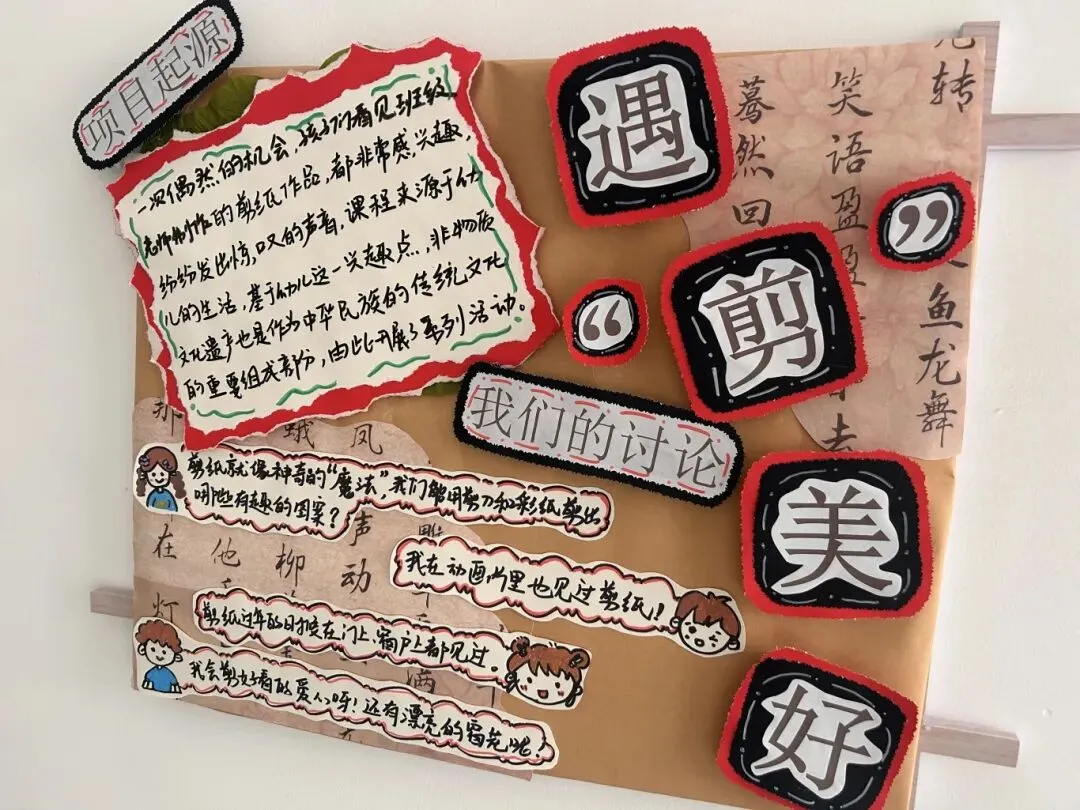 项目起源
一次偶然的机会,孩子们看见班级
老师制作的剪纸作品,都非常感兴趣,
纷纷发出惊叹的声音,课程来源于幼
儿的生活,基于幼儿这一兴趣点,非物质
文化遗产也是作为中华民族的传统文化
的重要组成部分,由此开展了系列活动。
遇
“剪”
美
好
我们的讨论
剪纸就像神奇的“魔法”,我们能用剪刀和彩纸剪出
哪些有趣的图案?
我在动画片里也见过剪纸!
剪纸过年的时候在门上,窗户上都见过。
我会剪好看的爱心呀!还有漂亮的窗花呢!
转
笑语盈盈
蓦然回
鱼龙舞
去
那
在
灯
蛾
凤
他
柳
声
动